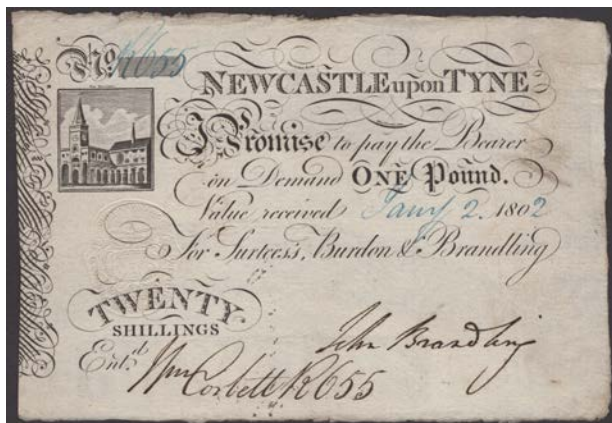 No. K655
NEWCASTLE upon TYNE
I Promise to pay the Bearer
on Demand ONE Pound.
Value received Jany 2. 1802
For Surtees's, Burdon & Brandling
TWENTY
SHILLINGS
John Brandling
Entd. Wm Corbett K655